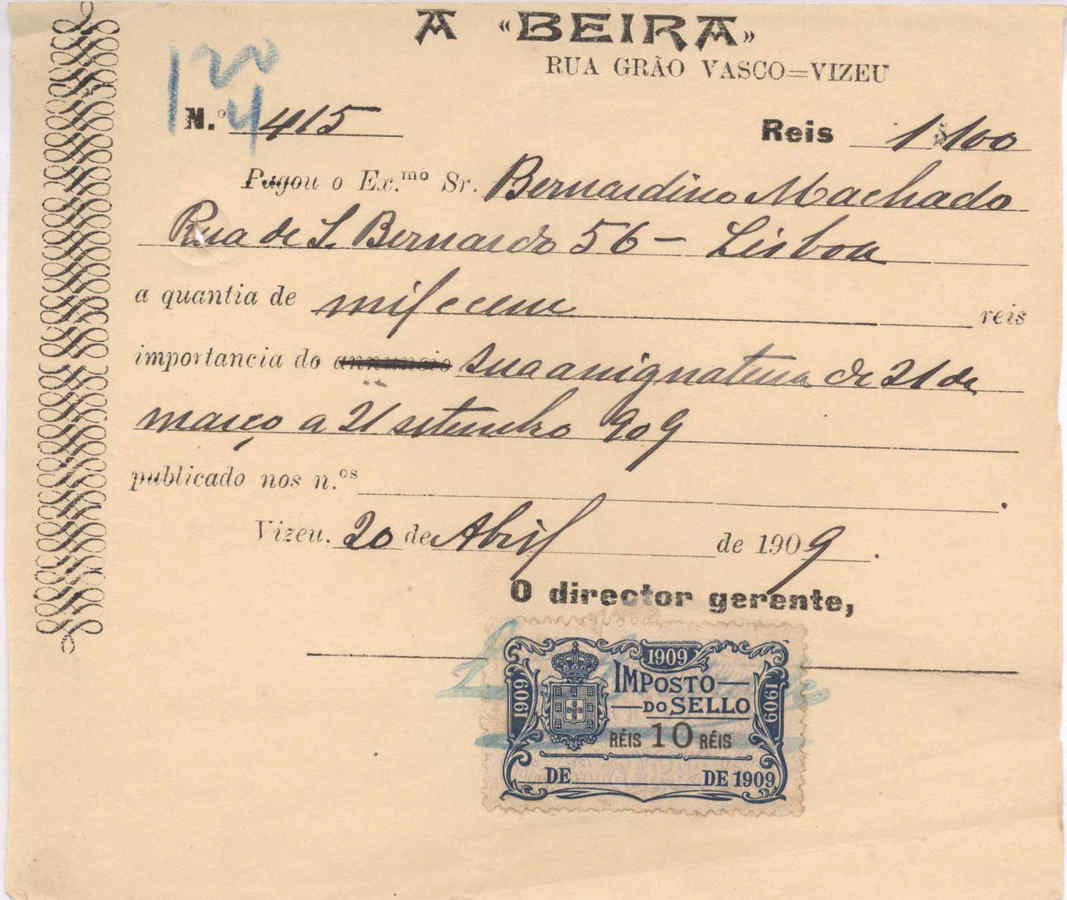 A «BEIRA»
RUA GRÃO VASCO=VIZEU
120
4
N.º 415 Reis 1$100
Pagou o Ex.mo Sr. Bernardino Machado
Rua de S. Bernardo 56 - Lisboa
a quantia de mil e cem reis
importancia do annuncio sua assignatura de 21 de
março a 21 setembro 909
publicado nos n.os .
Vizeu. 20 de Abril de 1909.
O director gerente,
1909
1909
1909
IMPOSTO
DO SELLO
RÉIS 10 RÉIS
DE DE 1909